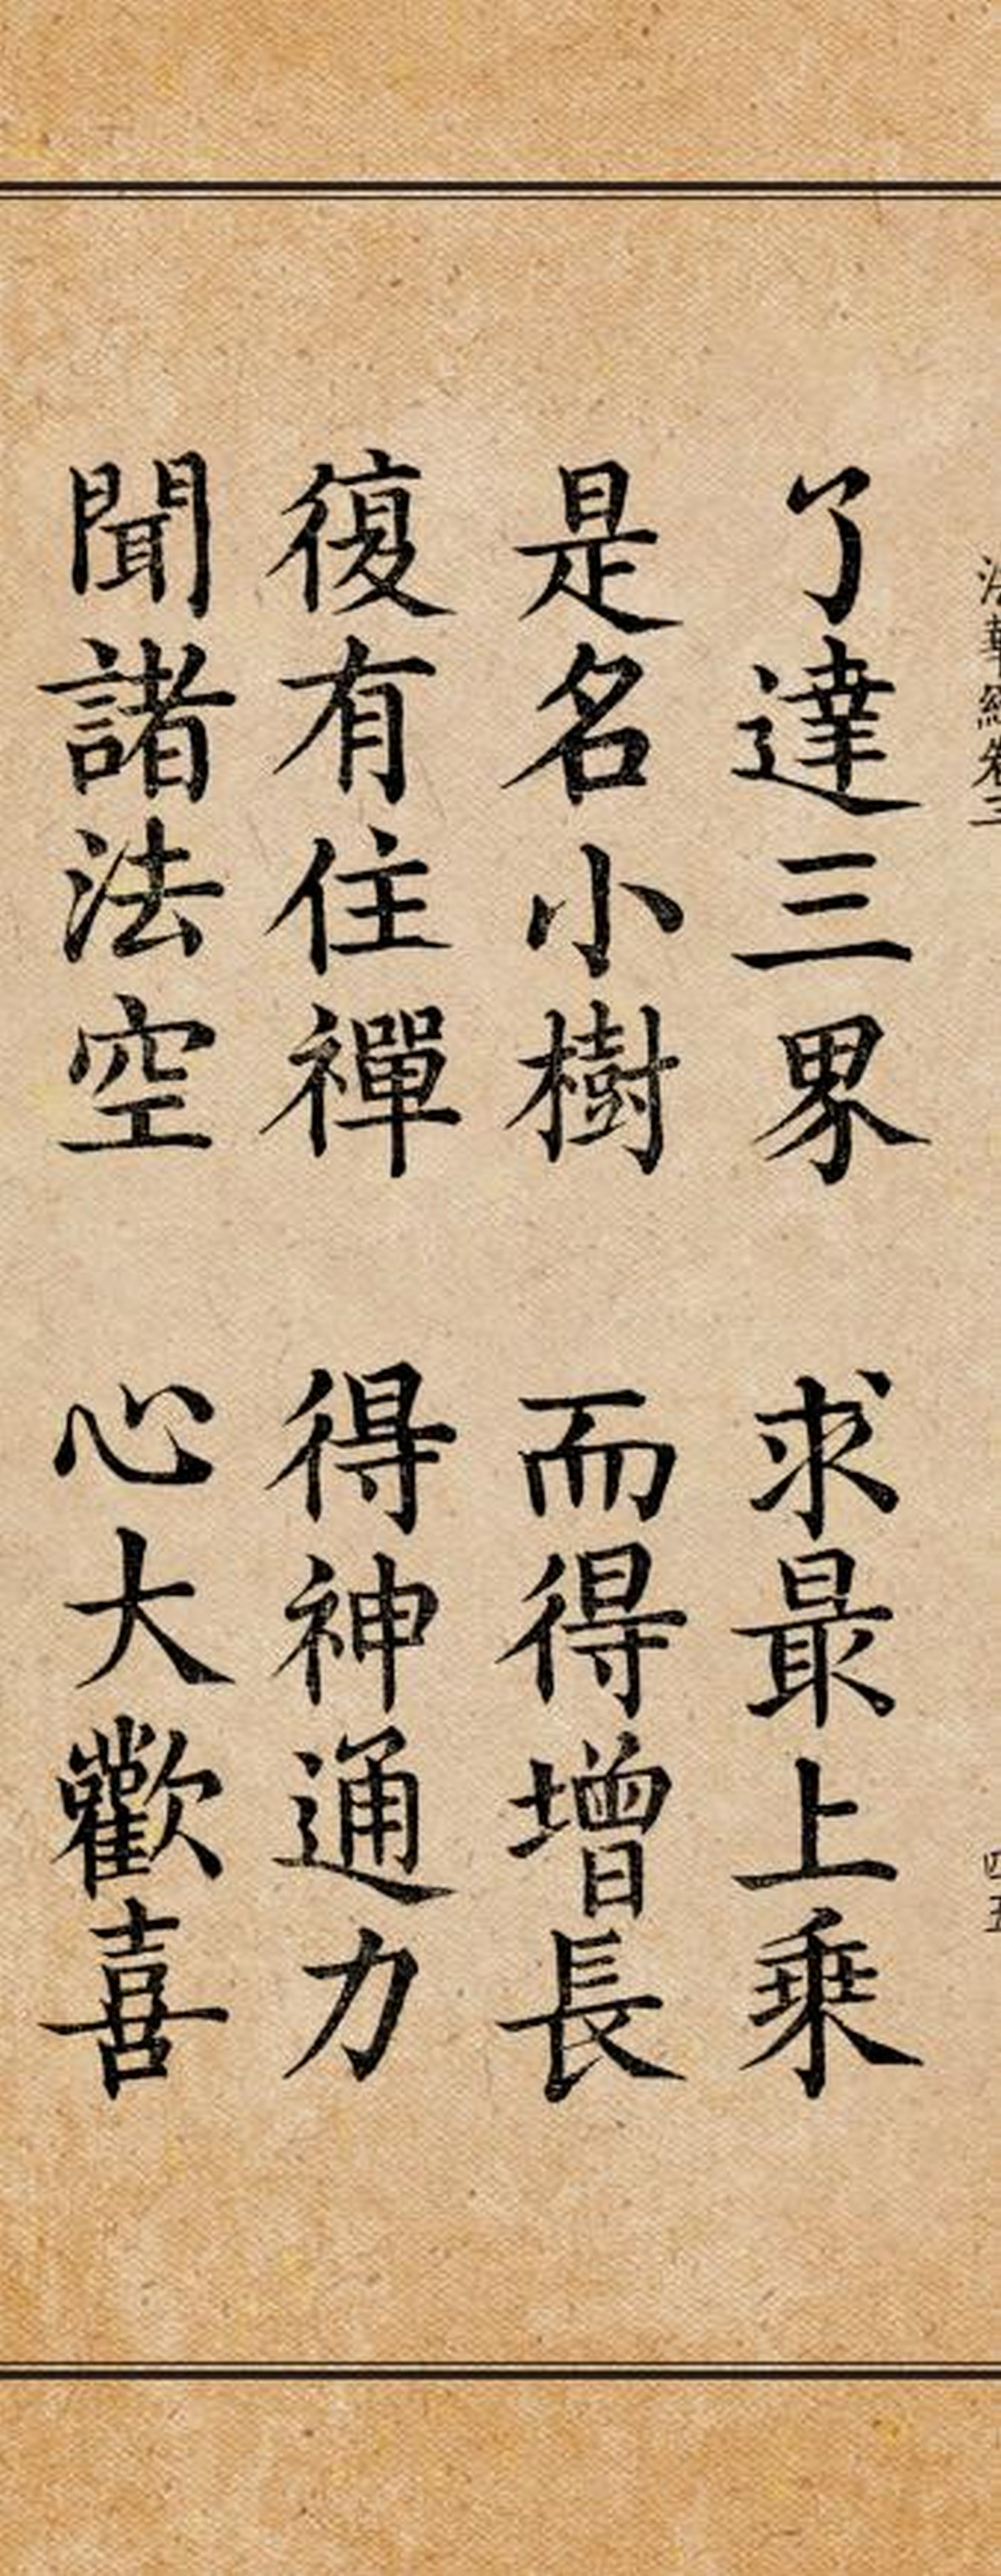 法華經卷三 四五
了達三界 求最上乘
是名小樹 而得增長
復有住禪 得神通力
聞諸法空 心大歡喜